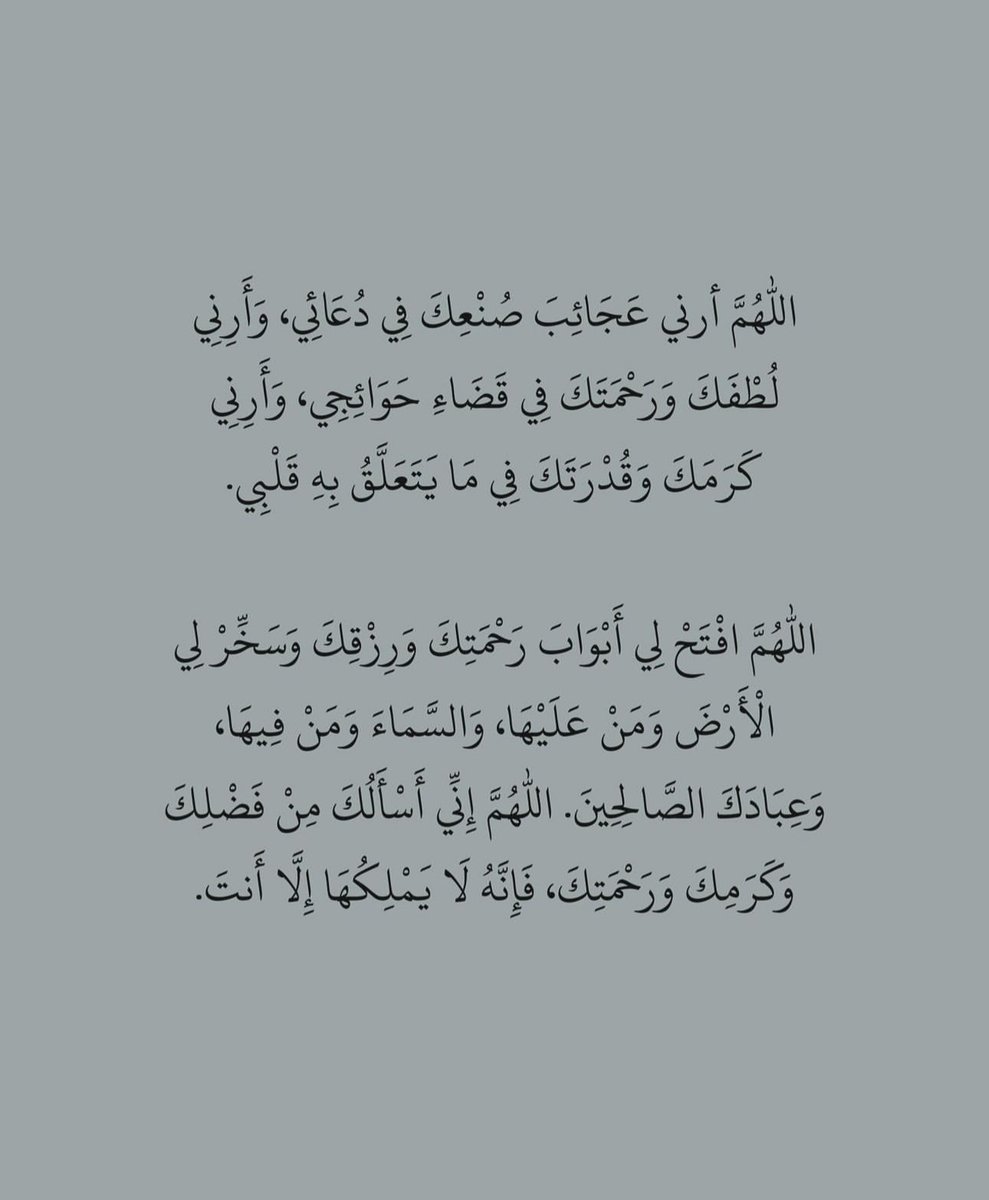 اللّٰهُمَّ أرني عَجَائِبَ صُنْعِكَ فِي دُعَائِي، وَأَرِنِي
لُطْفَكَ وَرَحْمَتَكَ فِي قَضَاءِ حَوَائِجِي، وَأَرِنِي
كَرَمَكَ وَقُدْرَتَكَ فِي مَا يَتَعَلَّقُ بِهِ قَلْبِي.
اللّٰهُمَّ افْتَحْ لِي أَبْوَابَ رَحْمَتِكَ وَرِزْقِكَ وَسَخِّرْ لِي
الْأَرْضَ وَمَنْ عَلَيْهَا، وَالسَّمَاءَ وَمَنْ فِيهَا،
وَعِبَادَكَ الصَّالِحِينَ. اللّٰهُمَّ إِنِّي أَسْأَلُكَ مِنْ فَضْلِكَ
وَكَرَمِكَ وَرَحْمَتِكَ، فَإِنَّهُ لَا يَمْلِكُهَا إِلَّا أَنتَ.